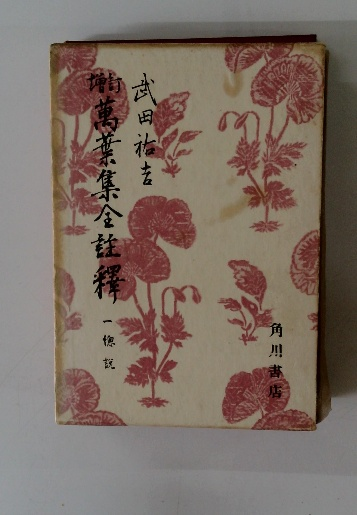 武田祐吉
増訂
萬葉集全註釋
一 總説
角川書店